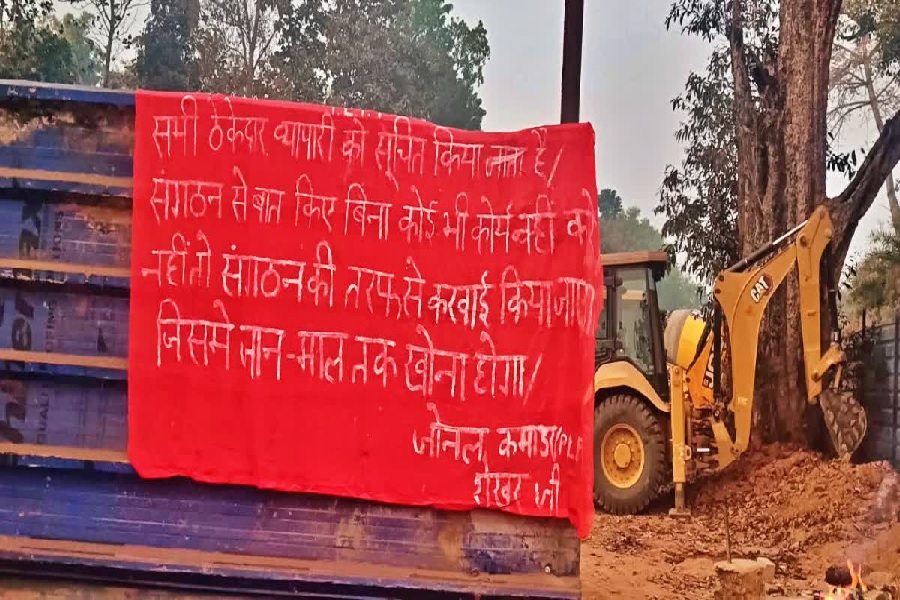 सभी ठेकेदार व्यापारी को सूचित किया जाता है/
संगठन से बात किए बिना कोई भी कार्य नहीं करे
नहीं तो संगठन की तरफ से करवाई किया जाएगा
जिसमे जान-माल तक खोना होगा/
जोनल कमांडर
शेखर जी
CAT